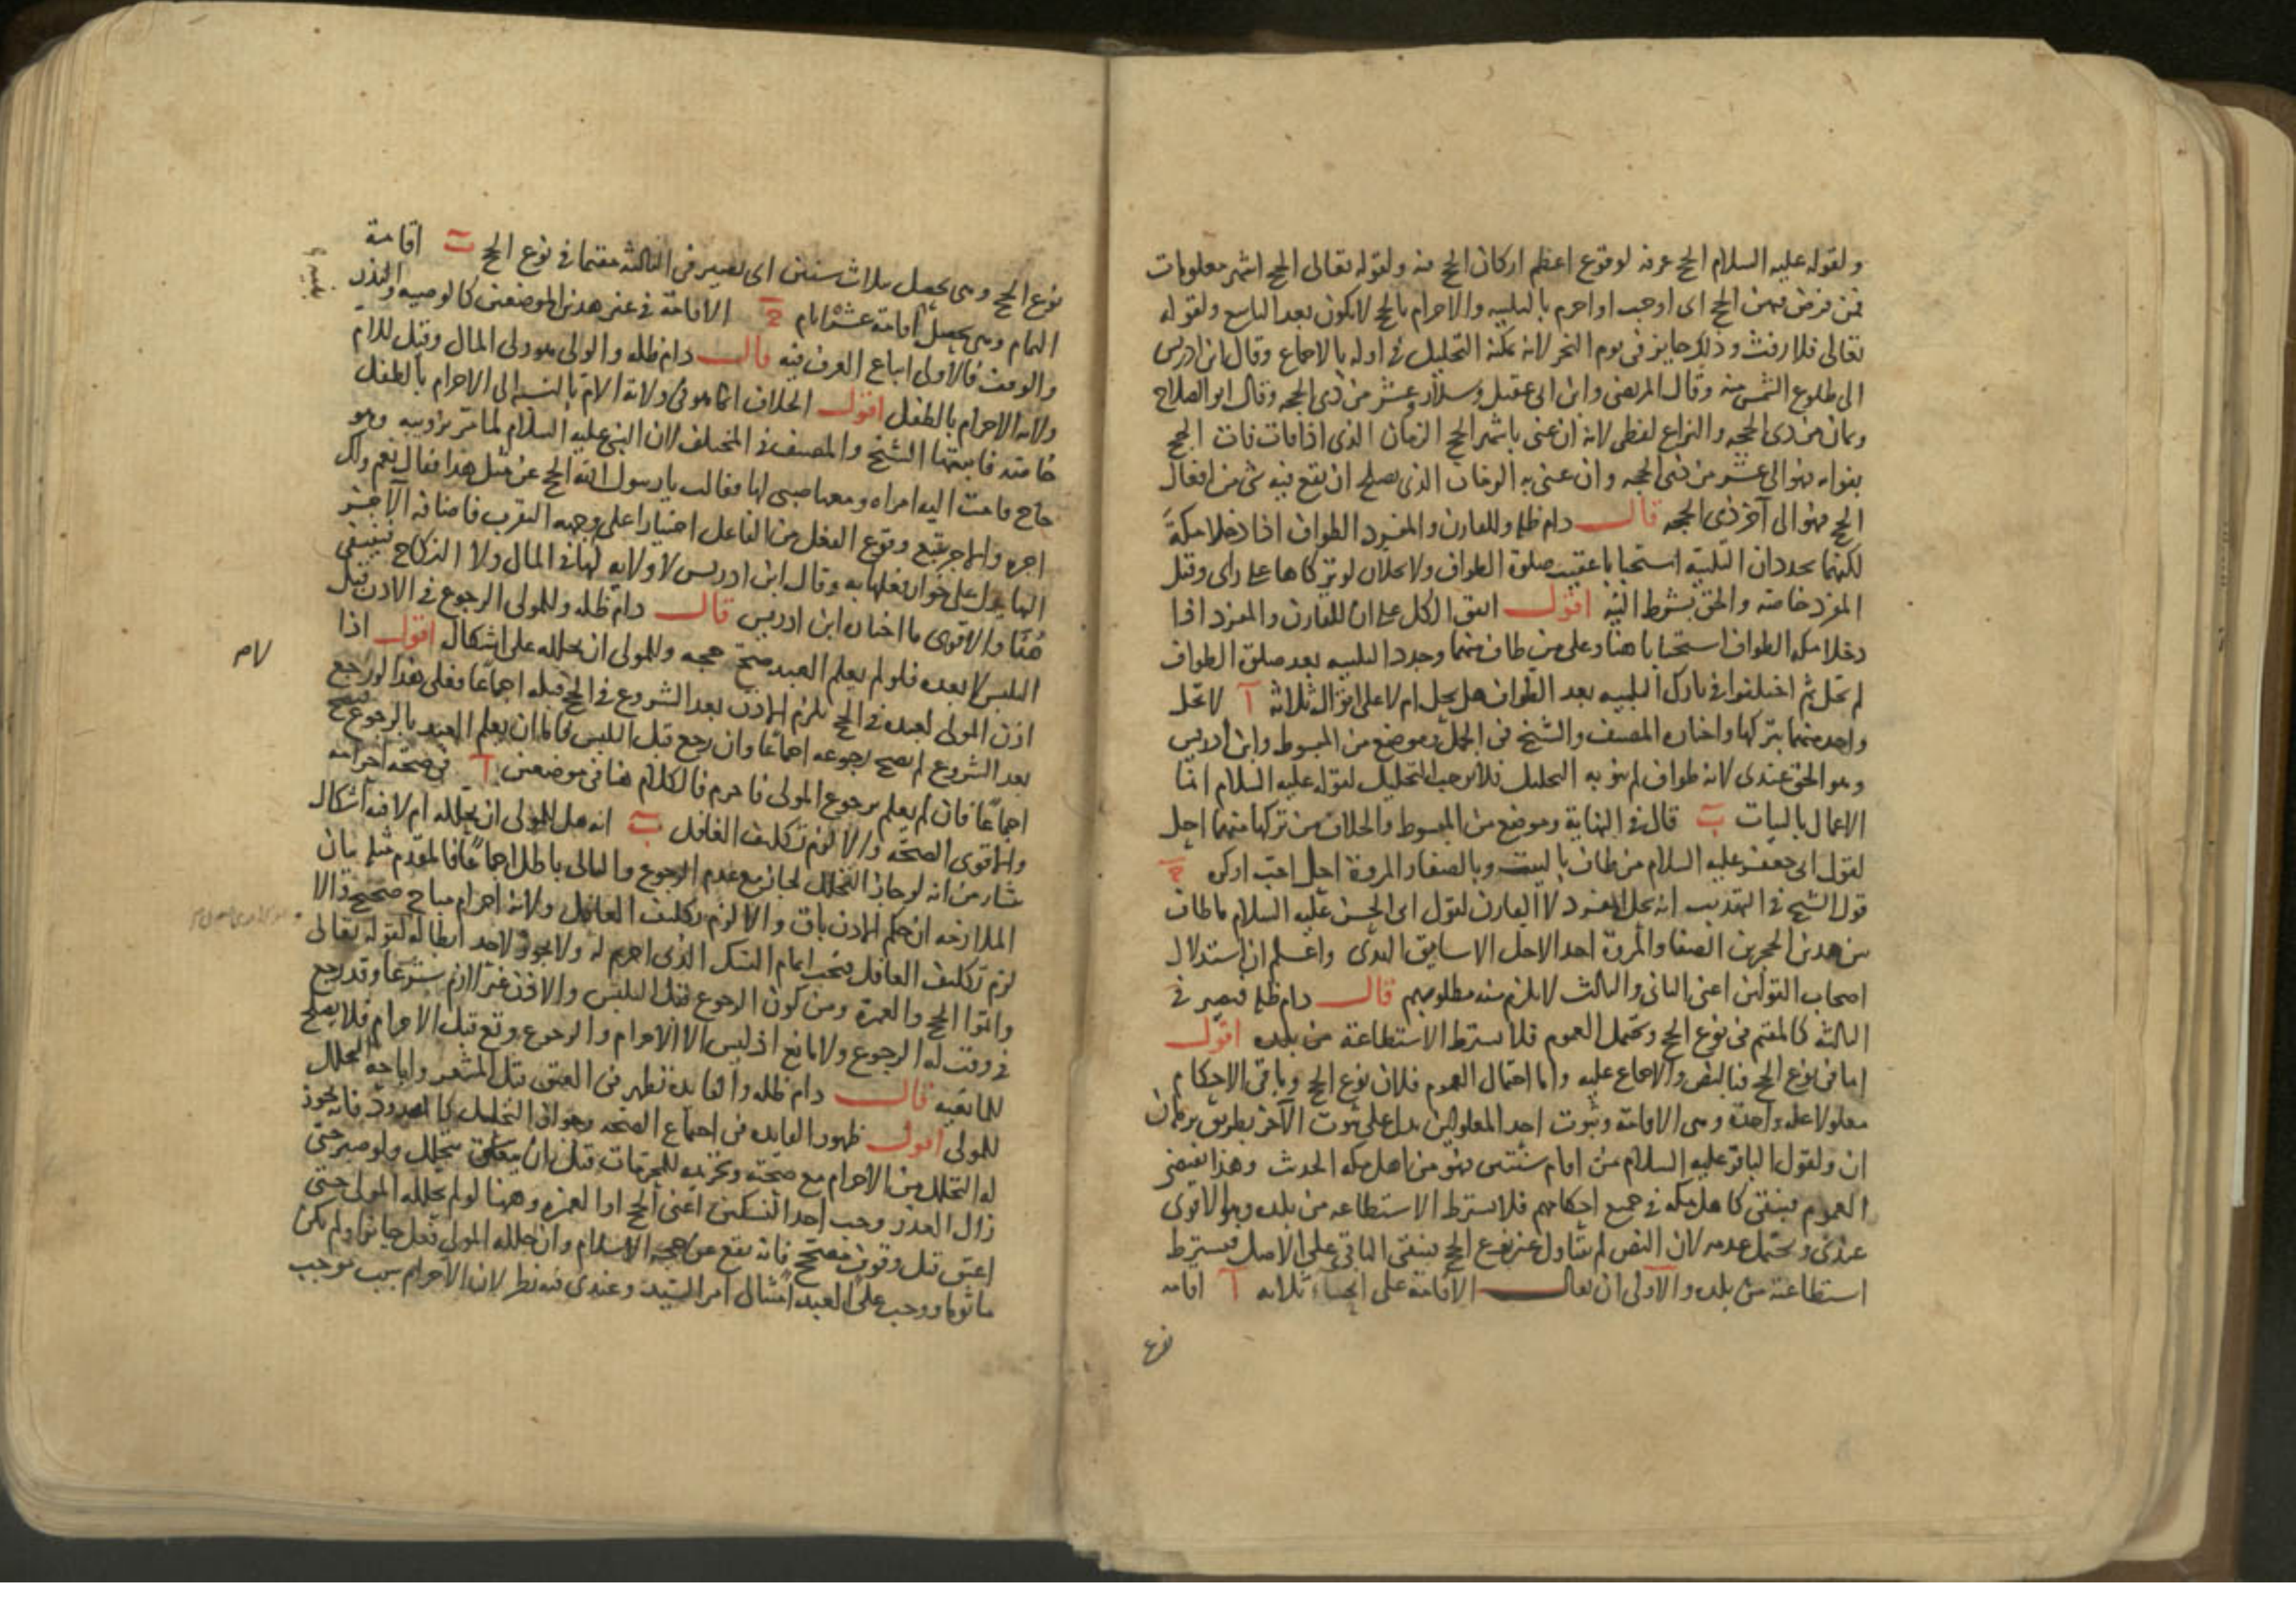 ولقوله عليه السلام الحج عرفة لوقوع اعظم اركان الحج فيه ولقوله تعالى الحج اشهر معلومات
فمن فرض فيهن الحج اى اوجب او احرم بالتلبيه والاحرام بالحج لا يكون بعد التاسع ولقوله
تعالى فلا رفث وذلك جايز فى يوم النحر لانه يمكنه التحليل فى اوله بالاجماع وقال ابن ادريس
الى طلوع الشمس منه وقال المرتضى وابن ابى عقيل وسلار وعشر من ذى الحجه وقال ابو الصلاح
وثمان من ذى الحجه والنزاع لفظى لانه ان عنى باشهر الحج الزمان الذى اذا فات فات الحج
بفواته فهو الى عشر من ذى الحجه وان عنى به الزمان الذى يصلح ان يقع فيه شى من افعال
الحج فهو الى آخر ذى الحجه قال دام ظله وللقارن والمفرد الطواف اذا دخلا مكة
لكنهما يجددان التلبية استحبابا عقيب صلوة الطواف ولا يحلان لو تركاها على راى وقيل
المفرد خاصة والحق بشرط النية اقول اتفق الكل على ان للقارن والمفرد اذا
دخلا مكه الطواف استحبابا هنا وعلى من طاف منهما وجدد التلبيه بعد صلوة الطواف
لم تحل ثم اختلفوا فى تارك التلبيه بعد الطواف هل يحل ام لا على اقوال ثلاثة آ لا تحل
واحد منهما بتركها واختاره المصنف والشيخ فى الجمل وموضع من المبسوط وابن ادريس
وهو الحق عندى لانه طواف لم ينو به التحليل فلا يوجب التحليل لقوله عليه السلام انما
الاعمال بالنيات ب قال فى النهاية وموضع من المبسوط والخلاف من تركها منهما احل
لقول ابى جعفر عليه السلام من طاف بالبيت وبالصفا والمروة احل احب او كره ج
قول الشيخ فى التهذيب انه يحل المفرد لا القارن لقول ابى الحسن عليه السلام ما طاف
بين هذين الحجرين الصفا والمروة احد الا احل الا سايق الهدى واعلم ان استدلال
اصحاب القولين اعنى الثانى والثالث لا يلزم منه مطلوبهم قال دام ظله فيصير فى
الثالثة كالمقيم فى نوع الحج ويحتمل العموم فلا يشترط الاستطاعة من بلده اقول
اما فى نوع الحج فبالنص والاجماع عليه واما احتمال العموم فلان نوع الحج وباقى الاحكام
معلولا علة واحدة وهى الاقامة وثبوت احد المعلولين يدل على ثبوت الآخر بطريق برهان
ان ولقول الباقر عليه السلام من اقام سنتين فهو من اهل مكه الحديث وهذا يقتضى
العموم فيبقى كاهل مكه فى جميع احكامهم فلا يشترط الاستطاعه من بلده وهو الاقوى
عندى ويحتمل عدمه لان النص لم يتناول غير نوع الحج فيبقى الباقى على الاصل فيشترط
استطاعته من بلده والاولى ان يقال الاقامة على انحاء ثلاثه آ اقامه
نوع
نوع الحج وهى تحصل بثلاث سنين اى يصير فى الثالثه مقيما فى نوع الحج ب اقامة
التمام وهى تحصل اقامة عشرة ايام ج الاقامة فى غير هذين الموضعين كالوصيه والنذر
والوقف فالاولى اتباع العرف فيه قال دام ظله والولى هو ولى المال وقيل للام
ولاية الاحرام بالطفل اقول الخلاف انما هو فى ولاية الام بالنسبه الى الاحرام بالطفل
خاصة فاثبتها الشيخ والمصنف فى المختلف لان النبى عليه السلام لما مر برويبه وهو
حاج قامت اليه امراه ومعها صبى لها فقالت يا رسول الله الحج عن مثل هذا فقال نعم ولك
اجره والاجر يتبع وقوع الفعل من الفاعل اختيارا على وجه التقرب فاضافة الاجر
اليها يدل على جواز فعلها به وقال ابن ادريس لا ولاية لها فى المال ولا النكاح فينتفى
هنا والاقوى ما اختاره ابن ادريس قال دام ظله وللمولى الرجوع فى الاذن قبل
التلبس لا بعده فلو لم يعلم العبد صح حجه وللمولى ان يحلله على اشكال اقول اذا
اذن المولى لعبده فى الحج يلزم الاذن بعد الشروع فى الحج قبله اجماعا فعلى هذا لو رجع
بعد الشروع لم يصح رجوعه اجماعا وان رجع قبل التلبس فاما ان يعلم العبد بالرجوع فيصح
اجماعا فان لم يعلم برجوع المولى فاحرم فالكلام هنا فى موضعين آ فى صحة احرامه
والاقوى الصحة والا لزم تكليف الغافل ب انه هل للمولى ان يحلله ام لا فيه اشكال
ينشا من انه لو جاز التحلل لجاز مع عدم الرجوع والتالى باطل اجماعا فالمقدم مثله بيان
الملازمه ان حكم الاذن باق والا لزم تكليف الغافل ولانه احرام مباح صحيح والا
لزم تكليف الغافل فيجب اتمام النسك الذى احرم له ولا يجوز لاحد ابطاله لقوله تعالى
واتموا الحج والعمرة ومن كون الرجوع قبل التلبس والاذن غير لازم شرعا وقد رجع
فى وقت له الرجوع ولا مانع اذ ليس الا الاحرام والرجوع وقع قبل الاحرام فلا يصلح
للمانعيه قال دام ظله والفايدة تظهر فى العتق قبل المشعر واباحة التحلل
للمولى اقول ظهور الفايده فى اجتماع الصحه وجواز التحليل كالمصدود فانه يجوز
له التحلل من الاحرام مع صحته وتحريمه للمحرمات قبل ان يتحلل ولو صبر حتى
زال العذر وجب احد النسكين اعنى الحج او العمرة وهنا لو لم يحلله المولى حتى
اعتق قبل وقوف صحيح فانه يقع عن حجه الاسلام وان حلله المولى فعل جايزا ولم يكن
ماثوما ووجب على العبد امتثال امر السيد وعندى فيه نظر لان الاحرام سبب موجب